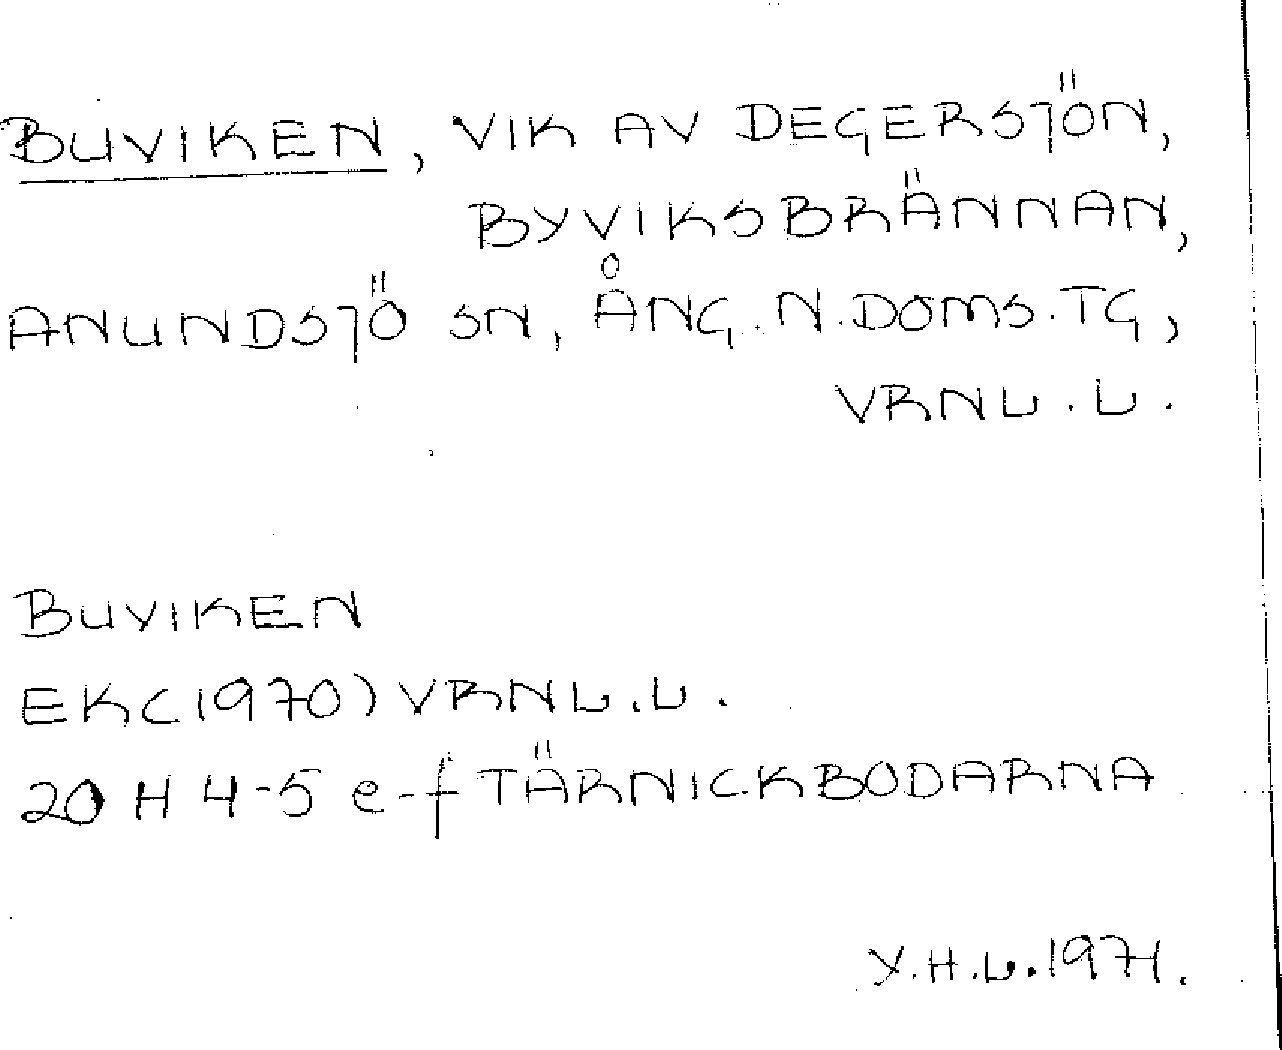 BUVIKEN, VIK AV DEGERSJÖN,
BYVIKSBRÄNNAN,
ANUNDSJÖ SN, ÅNG. N. DOMS. TG,
VRNL. L.
BUVIKEN
EK(1970) VRNL. L.
20 H 4-5 e-f TÄRNICKBODARNA
Y.H.L. 1971.